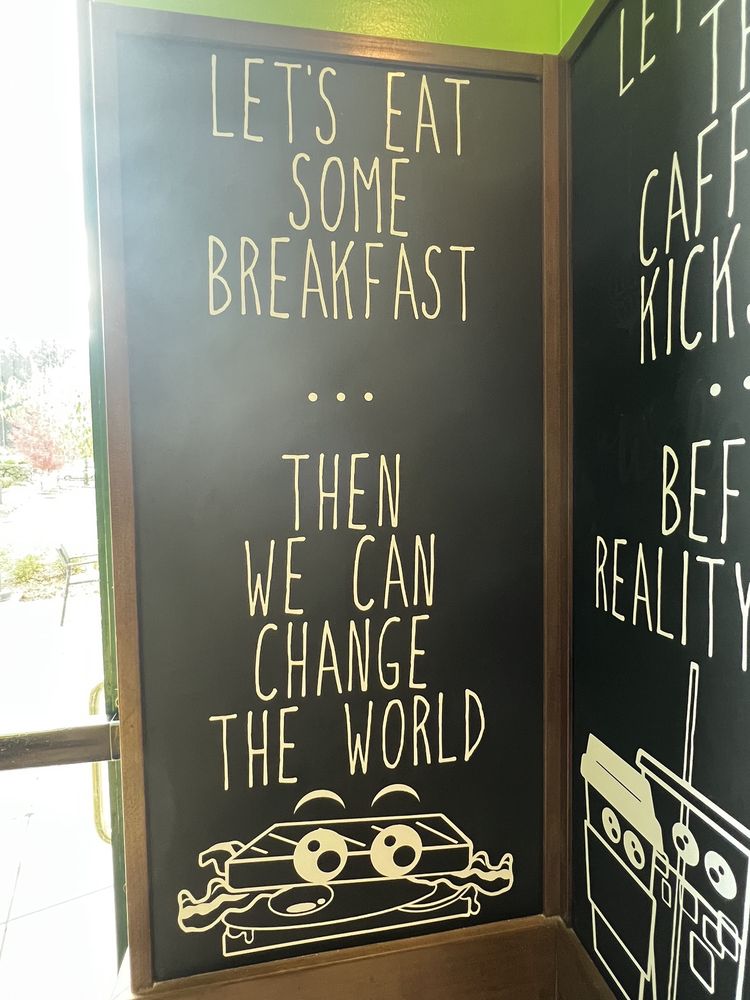 LET'S EAT
SOME
BREAKFAST
...
THEN
WE CAN
CHANGE
THE WORLD
KICK
REALITY